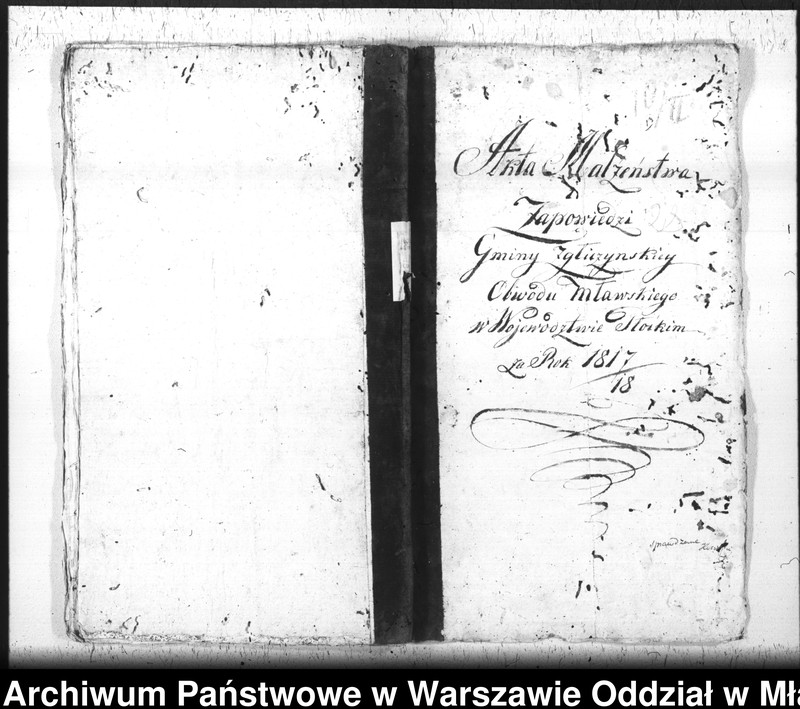 Akta Małżeństwa
Zapowiedzi
Gminy Zgliczynskiey
Obwodu Mławskiego
w Wojewodztwie Płockim
za Rok 1817
18
sprawdzone
Archiwum Państwowe w Warszawie Oddział w Mła